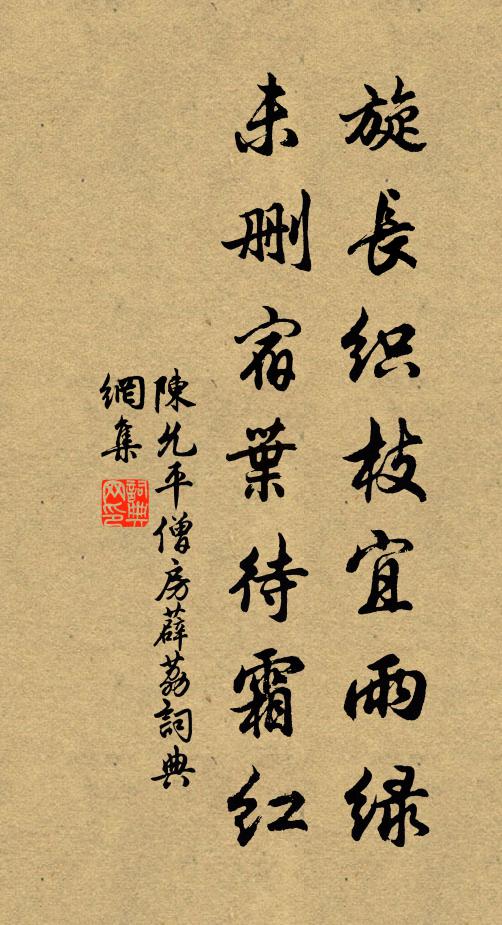 旋長织枝宜雨緑
未刪宿葉待霜红
陳允平僧房薜荔詞典
網集
詞典網印